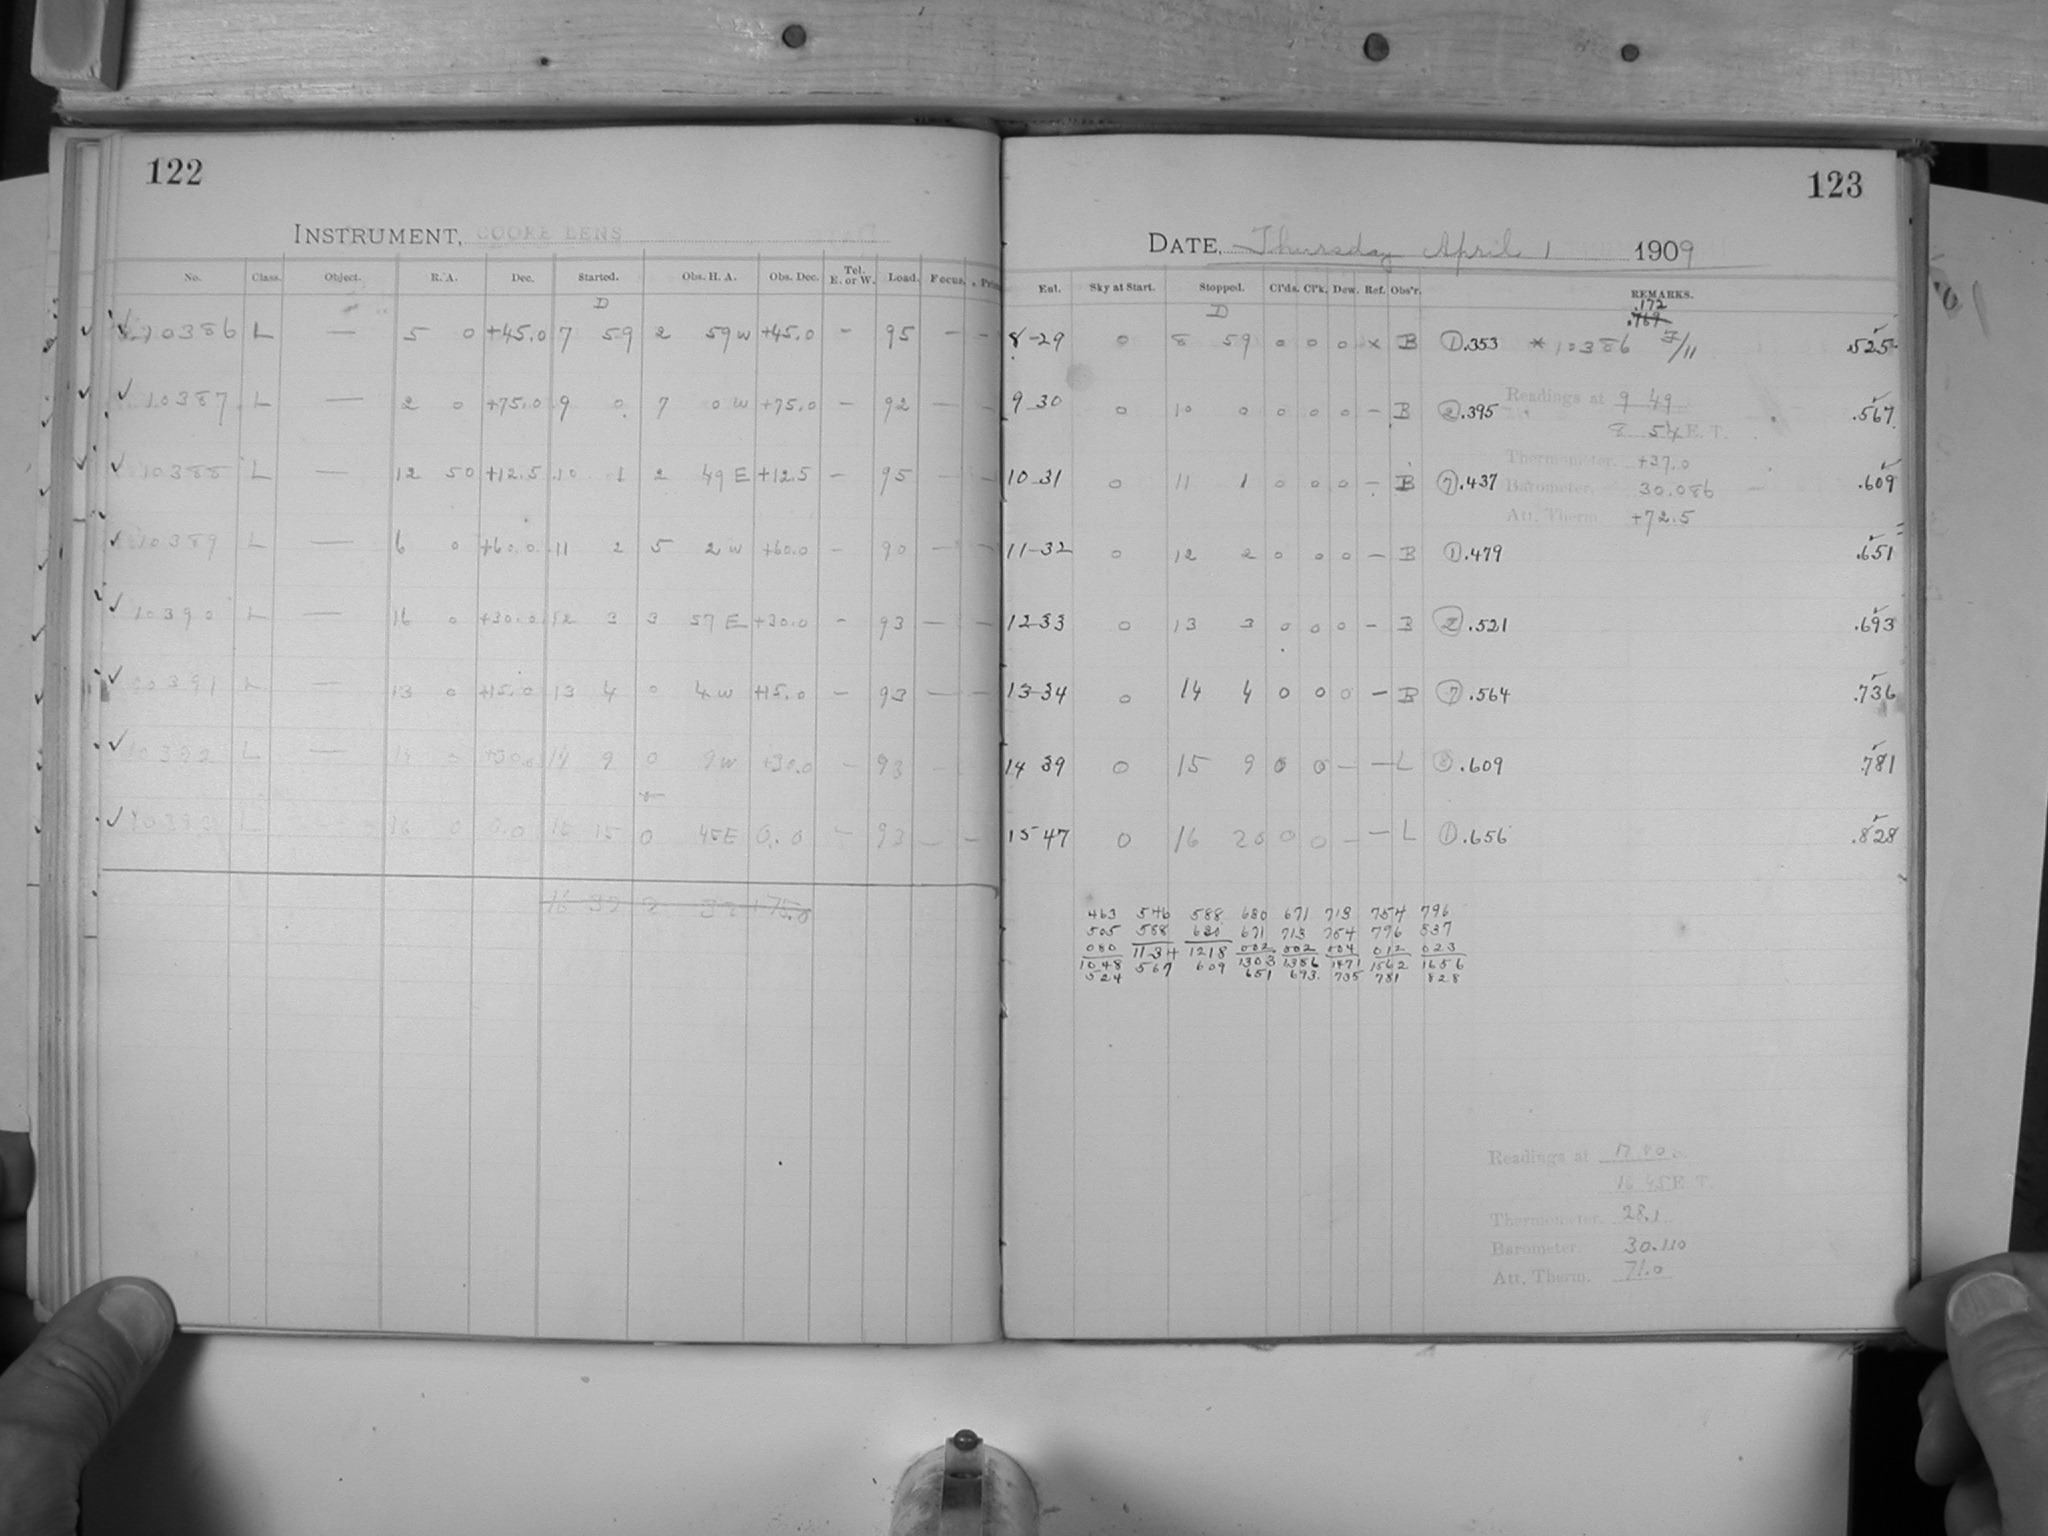 122
INSTRUMENT, COOKE LENS
No. Class. Object. R. A. Dec. Started. Obs. H. A. Obs. Dec. Tel. E. or W. Load. Focus.
D
10386 L — 5 0 +45.0 7 59 2 59 W +45.0 - 95 — —
10387 L — 2 0 +75.0 9 0 7 0 W +75.0 - 92 — —
10388 L — 12 50 +12.5 10 1 2 49 E +12.5 - 95 — —
10389 L — 6 0 +60.0 11 2 5 2 W +60.0 - 90 — —
10390 L — 16 0 +30.0 12 3 3 57 E +30.0 - 93 — —
10391 L — 13 0 +15.0 13 4 0 4 W +15.0 - 93 — —
10392 L — 14 0 +30.0 14 9 0 9 W +30.0 - 93 —
10393 L 16 0 0.0 15 15 0 45 E 0.0 - 93 — —
16 32 2 32 +75.0
123
DATE, Thursday April 1 1909
Ent. Sky at Start. Stopped. Cl'ds. Cl'k. Dew. Ref. Obs'r. REMARKS.
D .172
.769
8-29 0 8 59 0 0 0 x B ① .353 * 10386 F/11 .525
9 30 0 10 0 0 0 0 - B ② .395 Readings at 9 49 .567
8 54 E. T.
10 31 0 11 1 0 0 0 - B ⑦ .437 Thermometer. +37.0 .609
Barometer. 30.086
Att. Therm. +72.5
11-32 0 12 2 0 0 0 - B ① .479 .651
12 33 0 13 3 0 0 0 - B ② .521 .693
13-34 0 14 4 0 0 0 - B ⑦ .564 .736
14 39 0 15 9 0 0 — — L ⑧ .609 .781
15 47 0 16 20 0 0 — — L ① .656 .828
463 546 588 630 671 713 754 796
505 588 630 671 713 754 796 837
080 1134 1218 002 002 004 012 023
1048 567 609 1303 1386 1471 1562 1656
524 651 693 735 781 828
Readings at 17 40
16 45 E. T.
Thermometer. 28.1
Barometer. 30.110
Att. Therm. 71.0